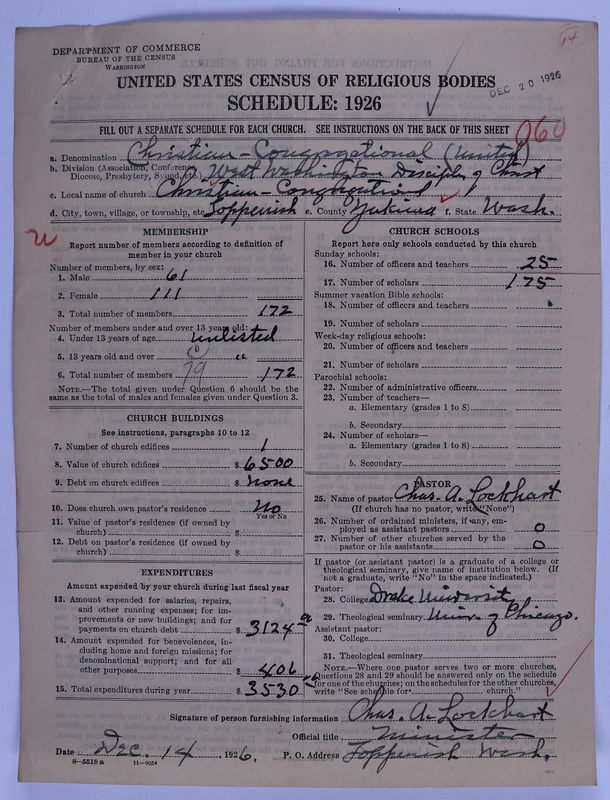 14
DEPARTMENT OF COMMERCE
BUREAU OF THE CENSUS
WASHINGTON
UNITED STATES CENSUS OF RELIGIOUS BODIES
DEC 20 1926
SCHEDULE: 1926
FILL OUT A SEPARATE SCHEDULE FOR EACH CHURCH. SEE INSTRUCTIONS ON THE BACK OF THIS SHEET
060
a. Denomination Christian - Congregational (United)
b. Division (Association, Conference, Diocese, Presbytery, Synod, etc.) West Washington Disciples of Christ
c. Local name of church Christian - Congregational
d. City, town, village, or township, etc. Toppenish e. County Yakima f. State Wash.
MEMBERSHIP
Report number of members according to definition of
member in your church
Number of members, by sex:
1. Male 61
2. Female 111
3. Total number of members 172
Number of members under and over 13 years old:
4. Under 13 years of age unlisted
5. 13 years old and over "
79
6. Total number of members 172
NOTE.—The total given under Question 6 should be the
same as the total of males and females given under Question 3.
CHURCH BUILDINGS
See instructions, paragraphs 10 to 12
7. Number of church edifices 1
8. Value of church edifices $ 6500
9. Debt on church edifices $ none
10. Does church own pastor's residence No
Yes or No
11. Value of pastor's residence (if owned by
church) $
12. Debt on pastor's residence (if owned by
church) $
EXPENDITURES
Amount expended by your church during last fiscal year
13. Amount expended for salaries, repairs,
and other running expenses; for im-
provements or new buildings; and for
payments on church debt $ 3124
14. Amount expended for benevolences, in-
cluding home and foreign missions; for
denominational support; and for all
other purposes $ 406
15. Total expenditures during year $ 3530
CHURCH SCHOOLS
Report here only schools conducted by this church
Sunday schools:
16. Number of officers and teachers 25
17. Number of scholars 175
Summer vacation Bible schools:
18. Number of officers and teachers
19. Number of scholars
Week-day religious schools:
20. Number of officers and teachers
21. Number of scholars
Parochial schools:
22. Number of administrative officers
23. Number of teachers—
a. Elementary (grades 1 to 8)
b. Secondary
24. Number of scholars—
a. Elementary (grades 1 to 8)
b. Secondary
PASTOR
25. Name of pastor Chas. A. Lockhart
(If church has no pastor, write "None")
26. Number of ordained ministers, if any, em-
ployed as assistant pastors 0
27. Number of other churches served by the
pastor or his assistants 0
If pastor (or assistant pastor) is a graduate of a college or
theological seminary, give name of institution below. (If
not a graduate, write "No" in the space indicated.)
Pastor:
28. College Drake University
29. Theological seminary Univ. of Chicago.
Assistant pastor:
30. College
31. Theological seminary
NOTE.—Where one pastor serves two or more churches,
Questions 28 and 29 should be answered only on the schedule
for one of the churches; on the schedules for the other churches,
write "See schedule for church."
Signature of person furnishing information Chas. A. Lockhart
Official title Minister
Date Dec. 14, 1926. P. O. Address Toppenish Wash.
8—5518 a 11—9054